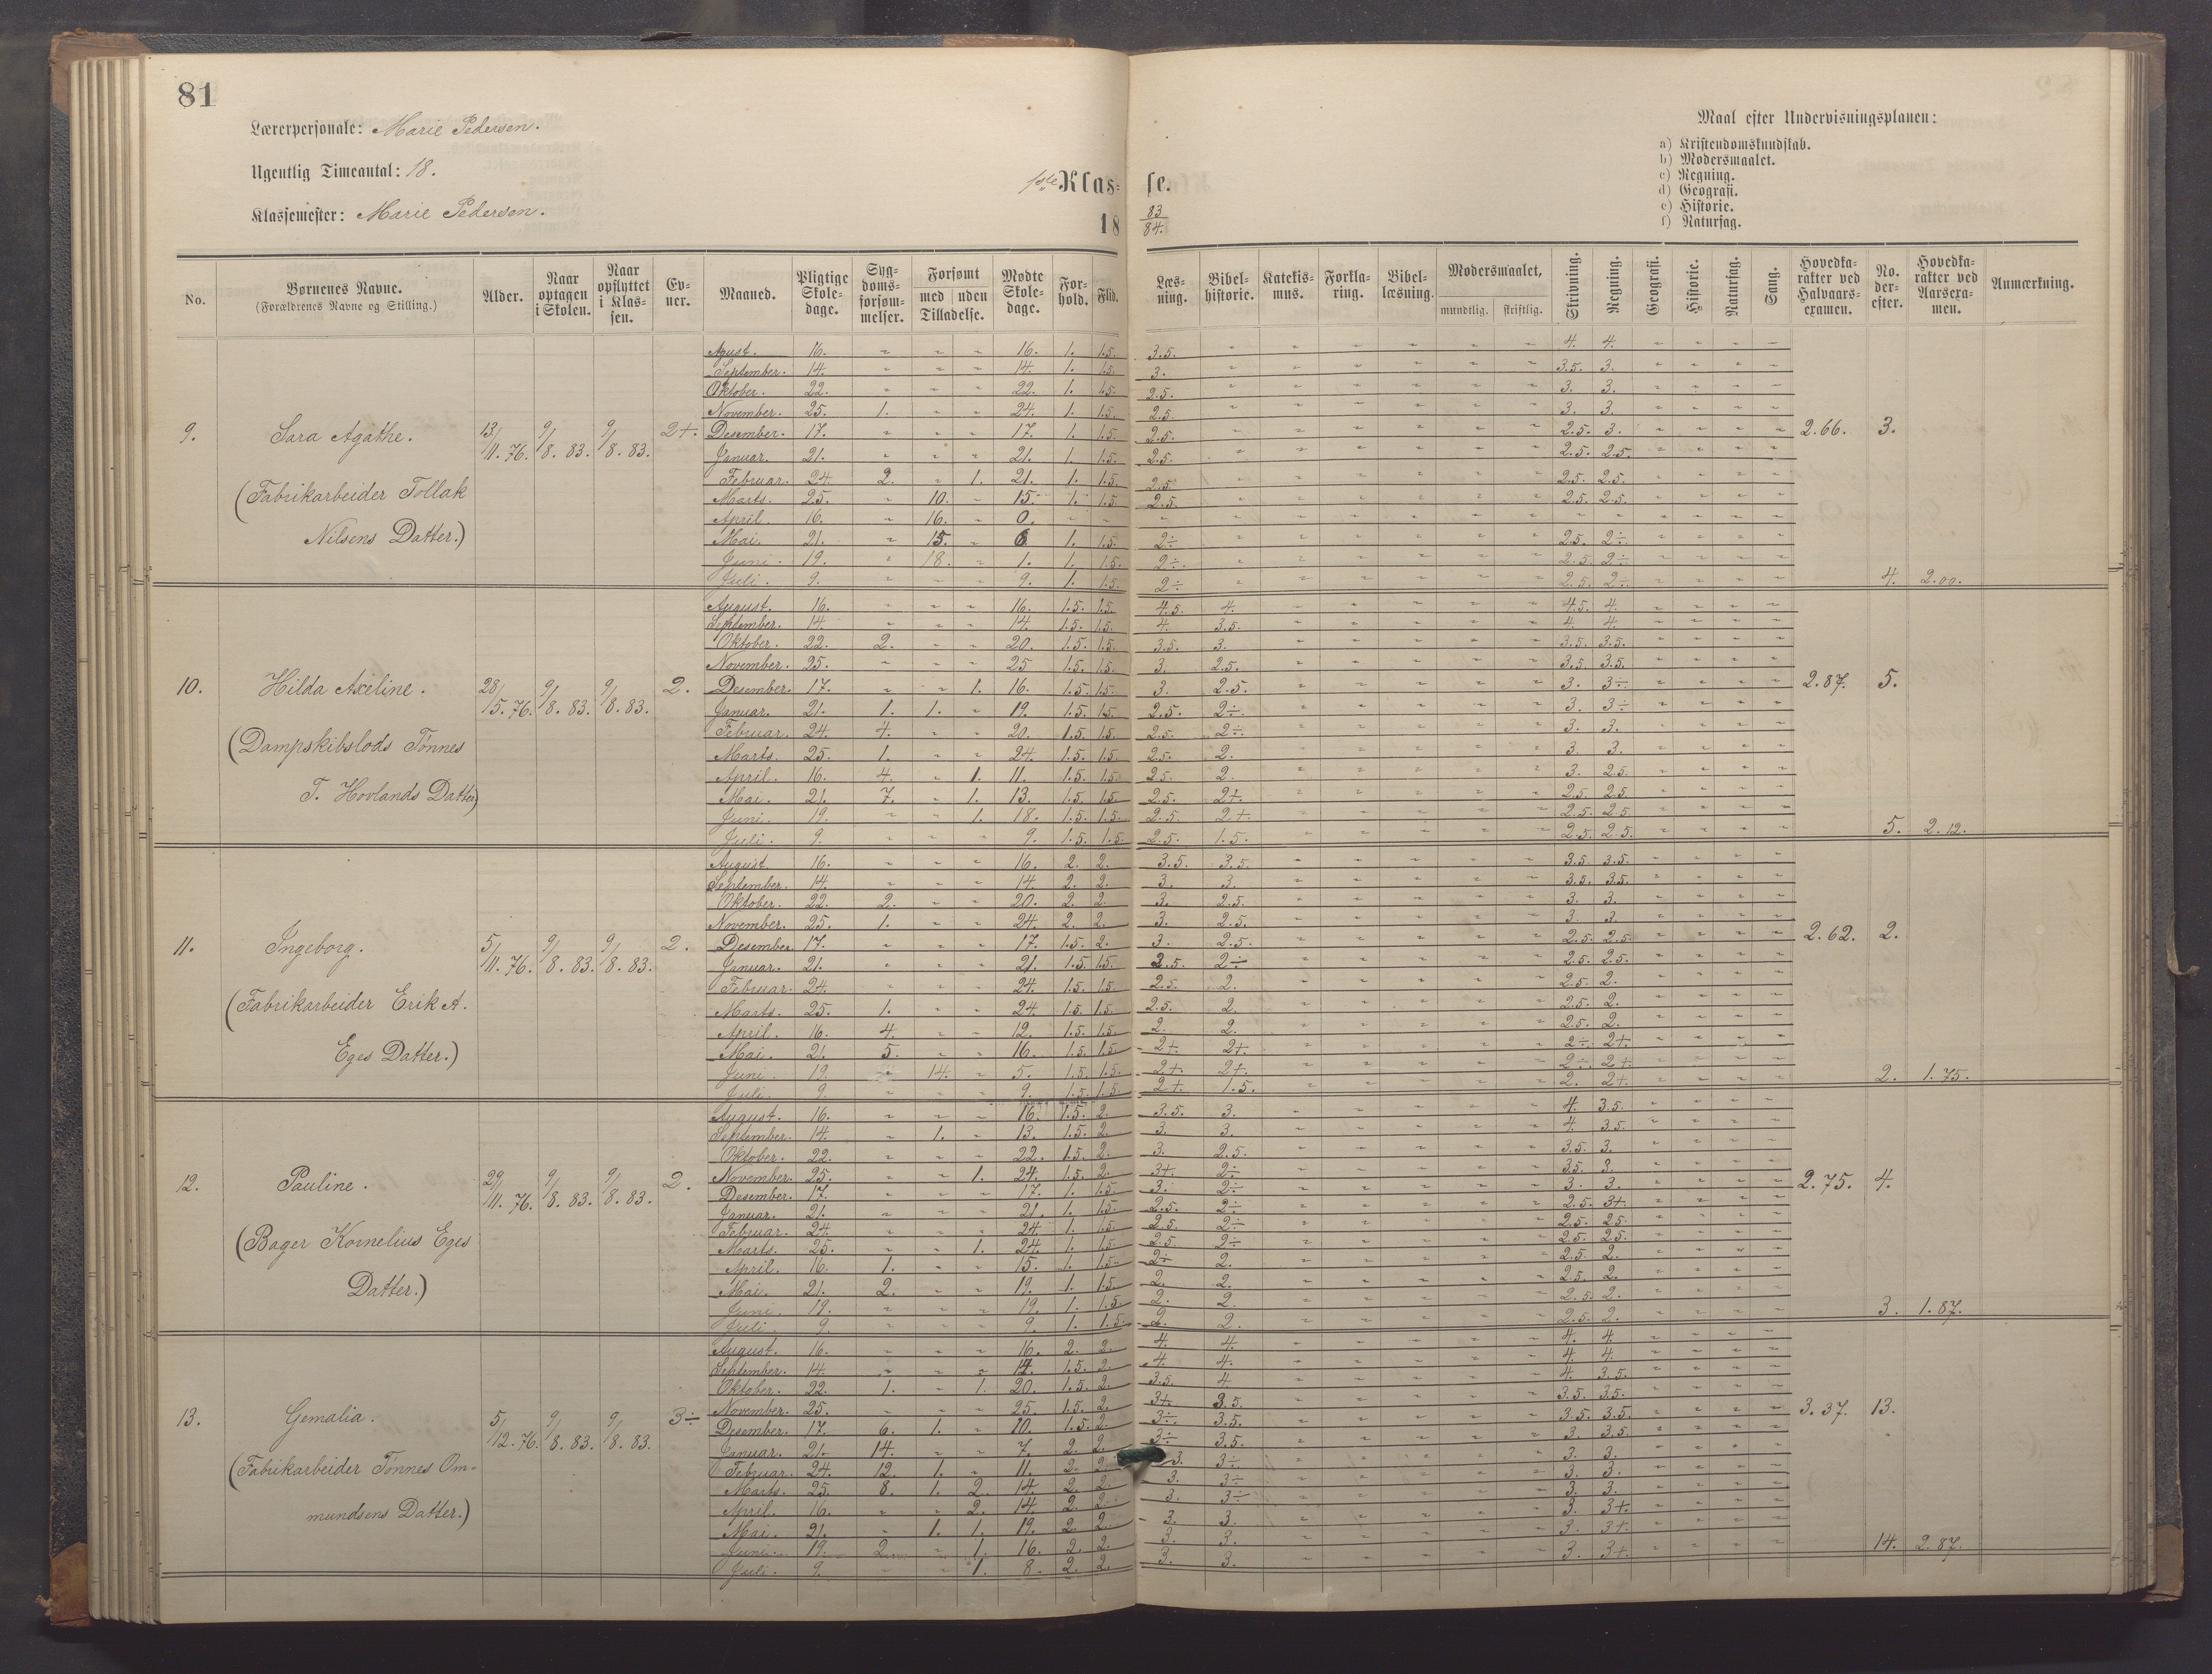 81
Lærerpersonale: Marie Pedersen.
Ugentlig Timeantal: 18.
Klassemester: Marie Pedersen.
1ste Klasse.
18 83/84.
Maal efter Undervisningsplanen:
a) Kristendomskundskab.
b) Modersmaalet.
c) Regning.
d) Geografi.
e) Historie.
f) Naturfag.
No. | Børnenes Navne. (Forældrenes Navne og Stilling.) | Alder. | Naar optagen i Skolen. | Naar opflyttet i Klassen. | Evner. | Maaned. | Pligtige Skoledage. | Sygdomsforsømmelser. | Forsømt med / uden Tilladelse. | Mødte Skoledage. | Forhold. | Flid. | Læsning. | Bibelhistorie. | Katekismus. | Forklaring. | Bibellæsning. | Modersmaalet, mundtlig. / skriftlig. | Skrivning. | Regning. | Geografi. | Historie. | Naturfag. | Sang. | Hovedkarakter ved Halvaarsexamen. | No. derefter. | Hovedkarakter ved Aarsexamen. | Anmærkning.
9. Sara Agathe. 13/11. 76. 9/8. 83. 9/8. 83. 2+. 2.66. 3.
(Fabrikarbeider Tollak
Nilsens Datter.)
Agust. 16. " " " 16. 1. 1.5. 3.5. " " " " " " 4. 4. " " " "
September. 14. " " " 14. 1. 1.5. 3. " " " " " " 3.5. 3. " " " "
Oktober. 22. " " " 22. 1. 1.5. 2.5. " " " " " " 3. 3. " " " "
November. 25. 1. " " 24. 1. 1.5. 2.5. " " " " " " 3. 3. " " " "
Desember. 17. " " " 17. 1. 1.5. 2.5. " " " " " " 2.5. 3. " " " "
Januar. 21. " " " 21. 1. 1.5. 2.5. " " " " " " 2.5. 2.5. " " " "
Februar. 24. 2. " 1. 21. 1. 1.5. 2.5. " " " " " " 2.5. 2.5. " " " "
Marts. 25. " 10. " 15. 1. 1.5. 2.5. " " " " " " 2.5. 2.5. " " " "
April. 16. " 16. " 0. " " " " " " " " " " " " " " "
Mai. 21. " 15. " 6 1. 1.5. 2÷ " " " " " " 2.5. 2÷. " " " "
Juni. 19. " 18. " 1. 1. 1.5. 2÷. " " " " " " 2.5. 2÷. " " " "
Juli. 9. " " " 9. 1. 1.5. 2÷ " " " " " " 2.5. 2÷. " " " " 4. 2.00.
10. Hilda Axeline. 28/5. 76. 9/8. 83. 9/8. 83. 2. 2.87. 5.
(Dampskibslods Tønnes
T. Hovlands Datter)
August. 16. " " " 16. 1.5. 1.5. 4.5. 4. " " " " " 4.5. 4. " " " "
September. 14. " " " 14. 1.5. 1.5. 4. 3.5. " " " " " 4. 4. " " " "
Oktober. 22. 2. " " 20. 1.5. 1.5. 3.5. 3. " " " " " 3.5. 3.5. " " " "
November. 25. " " " 25 1.5. 1.5. 3. 2.5. " " " " " 3.5. 3.5. " " " "
Desember. 17. " " 1. 16. 1.5. 1.5. 3. 2.5. " " " " " 3. 3÷. " " " "
Januar. 21. 1. 1. " 19. 1.5. 1.5. 2.5. 2÷. " " " " " 3. 3÷ " " " "
Februar. 24. 4. " " 20. 1.5. 1.5. 2.5. 2÷. " " " " " 3. 3. " " " "
Marts. 25. 1. " " 24. 1.5. 1.5. 2.5. 2. " " " " " 3. 3. " " " "
April. 16. 4. " 1. 11. 1.5. 1.5. 2.5. 2. " " " " " 3. 2.5. " " " "
Mai. 21. 7. " 1. 13. 1.5. 1.5. 2.5. 2+. " " " " " 2.5. 2.5. " " " "
Juni. 19. " " 1. 18. 1.5. 1.5. 2.5. 2+. " " " " " 2.5. 2.5. " " " "
Juli. 9. " " " 9. 1.5. 1.5. 2.5. 1.5. " " " " " 2.5. 2.5. " " " " 5. 2.12.
11. Ingeborg. 5/11. 76. 9/8. 83. 9/8. 83. 2. 2.62. 2.
(Fabrikarbeider Erik A.
Eges Datter.)
August 16. " " " 16. 2. 2. 3.5. 3.5. " " " " " 3.5. 3.5. " " " "
September. 14. " " " 14. 2. 2. 3. 3. " " " " " 3.5. 3.5. " " " "
Oktober. 22. 2. " " 20. 2. 2. 3. 2.5. " " " " " 3. 3. " " " "
November. 25. 1. " " 24. 2. 2. 3. 2.5. " " " " " 3. 3. " " " "
Desember. 17. " " " 17. 1.5. 2. 3. 2.5. " " " " " 2.5. 2.5. " " " "
Januar. 21. " " " 21. 1.5. 1.5. 2.5. 2÷ " " " " " 2.5. 2.5. " " " "
Februar. 24. " " " 24. 1.5. 1.5 2.5. 2. " " " " " 2.5. 2. " " " "
Marts. 25. 1. " " 24. 1.5. 1.5. 2.5. 2. " " " " " 2.5. 2. " " " "
April. 16. 4. " " 12. 1.5. 1.5. 2. 2. " " " " " 2.5. 2. " " " "
Mai. 21. 5. " " 16. 1.5. 1.5. 2+. 2+. " " " " " 2÷. 2+ " " " "
Juni. 19. " 14. " 5. 1.5. 1.5. 2+. 2+. " " " " " 2÷. 2+ " " " "
Juli. 9. " " " 9. 1.5. 1.5. 2+ 1.5. " " " " " 2. 2+. " " " " 2. 1.75.
12. Pauline. 29/11. 76. 9/8. 83. 9/8. 83. 2. 2.75. 4.
(Bager Kornelius Eges
Datter.)
August. 16. " " " 16. 1.5. 2. 3.5. 3. " " " " " 4. 3.5. " " " "
September. 14. " 1. " 13. 1.5. 2. 3. 3. " " " " " 4. 3.5. " " " "
Oktober. 22. " " " 22. 1.5. 2. 3. 2.5. " " " " " 3.5. 3. " " " "
November. 25. " " 1. 24. 1.5. 2. 3+. 2÷. " " " " " 3.5. 3. " " " "
Desember. 17. " " " 17. 1. 1.5. 3. 2÷ " " " " " 3. 3. " " " "
Januar. 21. " " " 21. 1. 1.5. 2.5. 2÷ " " " " " 2.5. 3+. " " " "
Februar. 24. " " " 24. 1. 1.5. 2.5. 2÷ " " " " " 2.5. 2.5. " " " "
Marts. 25. " " 1. 24. 1. 1.5. 2.5. 2÷ " " " " " 2.5. 2.5. " " " "
April. 16. 1. " " 15. 1. 1.5. 2÷ 2. " " " " " 2.5. 2. " " " "
Mai. 21. 2. " " 19. 1. 1.5. 2. 2. " " " " " 2.5. 2. " " " "
Juni. 19. " " " 19. 1. 1.5. 2. 2. " " " " " 2.5. 2. " " " "
Juli. 9. " " " 9. 1. 1.5. 2. 2. " " " " " 2.5. 2. " " " " 3. 1.87.
13. Gemalia. 5/12. 76. 9/8. 83. 9/8. 83. 3÷ 3.37. 13.
(Fabrikarbeider Tønnes Om-
mundsens Datter.)
August. 16. " " " 16. 2. 2. 4. 4. " " " " " 4. 4. " " " "
September. 14. " " " 14. 1.5. 2. 4. 4. " " " " " 4. 4. " " " "
Oktober. 22. 1. " 1. 20. 1.5. 2. 3.5. 4 " " " " " 4. 3.5. " " " "
November. 25. " " " 25. 1.5. 2. 3+. 3.5. " " " " " 3.5. 3.5. " " " "
Desember. 17. 6. 1. " 10. 1.5. 2. 3÷. 3.5. " " " " " 3.5. 3.5. " " " "
Januar. 21. 14. " " 7. 2. 2. 3÷ 3.5. " " " " " 3. 3.5 " " " "
Februar. 24. 12. 1. " 11. 2. 2. 3. 3÷ " " " " " 3. 3. " " " "
Marts. 25. 8. 1. 2. 14. 2. 2. 3. 3÷ " " " " " 3. 3. " " " "
April. 16. " " 2. 14 2. 2. 3. 3÷ " " " " " 3. 3. " " " "
Mai. 21. " 1. 1. 19. 2. 2. 3. 3. " " " " " 3. 3+. " " " "
Juni. 19. 2. " 1. 16. 2. 2. 3. 3. " " " " " 3. 3+. " " " "
Juli. 9. " " 1. 8. 2. 2. 3. 3. " " " " " 3. 3+. " " " " 14. 2.87.